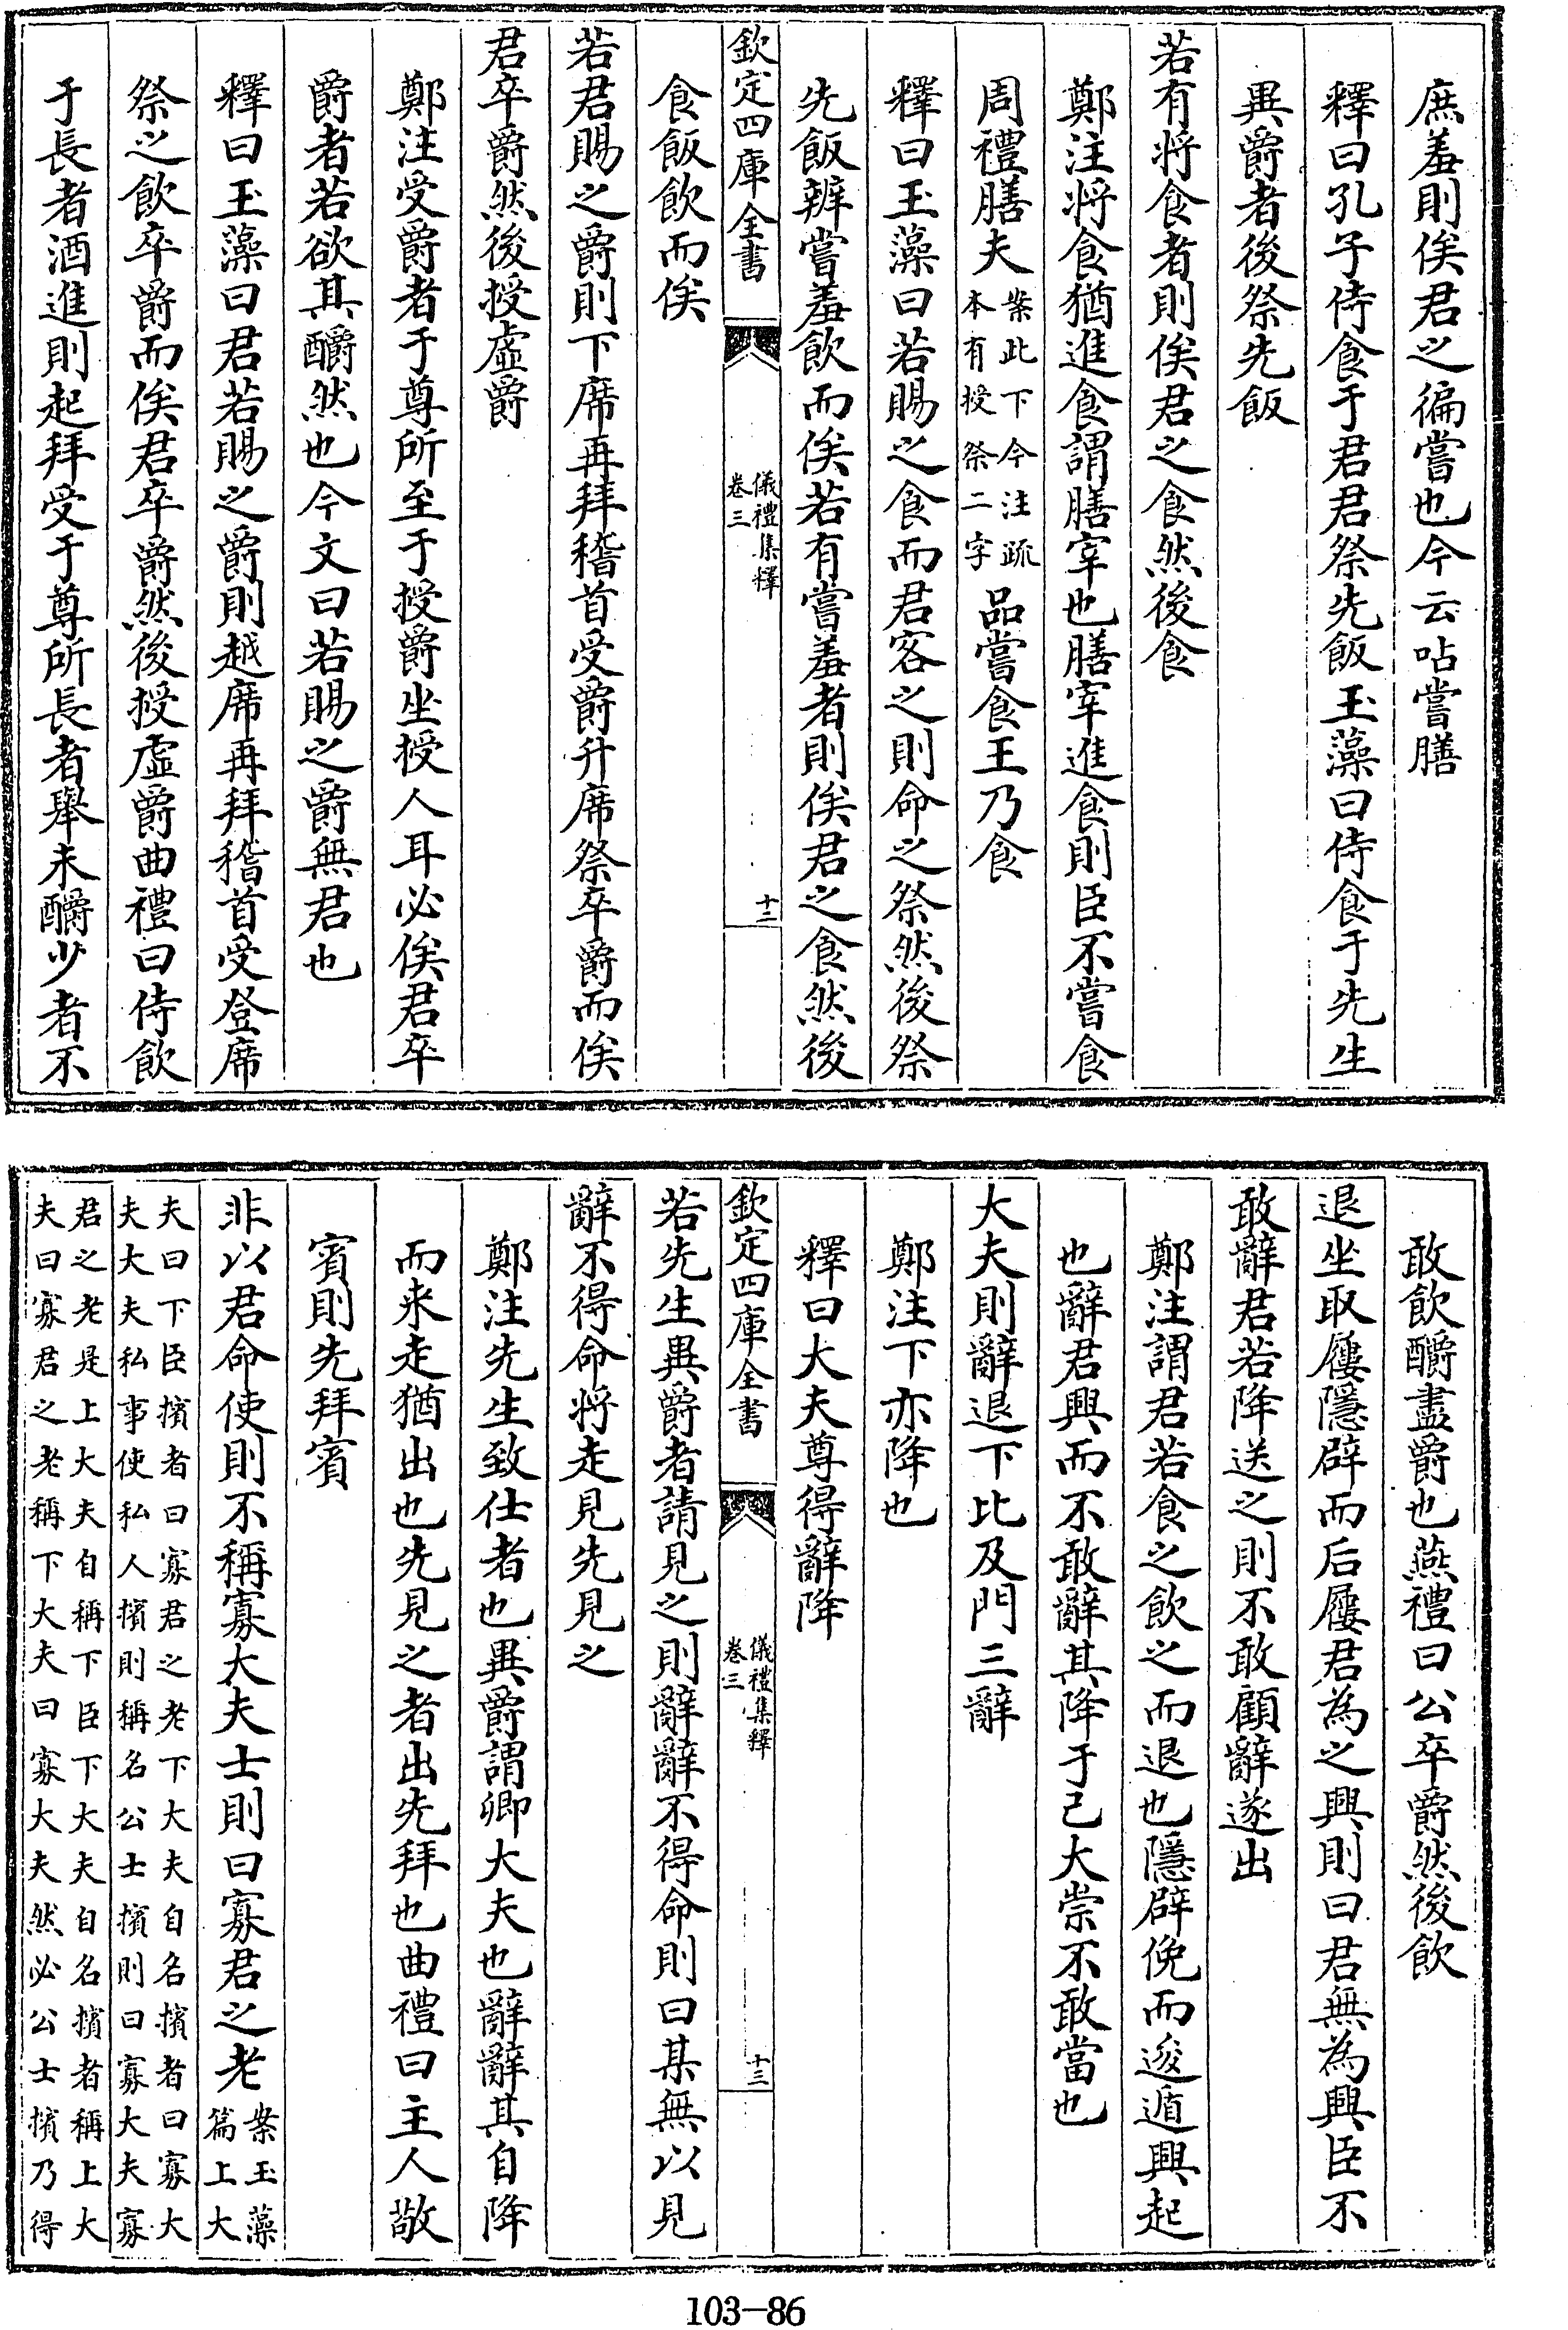 庶羞則俟君之徧嘗也今云呫嘗膳
釋曰孔子侍食于君君祭先飯玉藻曰侍食于先生
異爵者後祭先飯
若有将食者則俟君之食然後食
鄭注将食猶進食謂膳宰也膳宰進食則臣不嘗食
周禮膳夫案此下今注疏本有授祭二字品嘗食王乃食
釋曰玉藻曰若賜之食而君客之則命之祭然後祭
先飯辨嘗羞飲而俟若有嘗羞者則俟君之食然後
欽定四庫全書 儀禮集釋卷三 十二
食飯飲而俟
若君賜之爵則下席再拜稽首受爵升席祭卒爵而俟
君卒爵然後授虛爵
鄭注受爵者于尊所至于授爵坐授人耳必俟君卒
爵者若欲其釂然也今文曰若賜之爵無君也
釋曰玉藻曰君若賜之爵則越席再拜稽首受登席
祭之飲卒爵而俟君卒爵然後授虛爵曲禮曰侍飲
于長者酒進則起拜受于尊所長者舉未釂少者不
敢飲釂盡爵也燕禮曰公卒爵然後飲
退坐取屨隱辟而后屨君為之興則曰君無為興臣不
敢辭君若降送之則不敢顧辭遂出
鄭注謂君若食之飲之而退也隱辟俛而逡遁興起
也辭君興而不敢辭其降于己大崇不敢當也
大夫則辭退下比及門三辭
鄭注下亦降也
釋曰大夫尊得辭降
欽定四庫全書 儀禮集釋卷三 十三
若先生異爵者請見之則辭辭不得命則曰某無以見
辭不得命将走見先見之
鄭注先生致仕者也異爵謂卿大夫也辭辭其自降
而来走猶出也先見之者出先拜也曲禮曰主人敬
賓則先拜賓
非以君命使則不稱寡大夫士則曰寡君之老案玉藻篇上大
夫曰下臣擯者曰寡君之老下大夫自名擯者曰寡大夫大夫私事使私人擯則稱名公士擯則曰寡大夫寡
君之老是上大夫自稱下臣下大夫自名擯者稱上大夫曰寡君之老稱下大夫曰寡大夫然必公士擯乃得
103-86